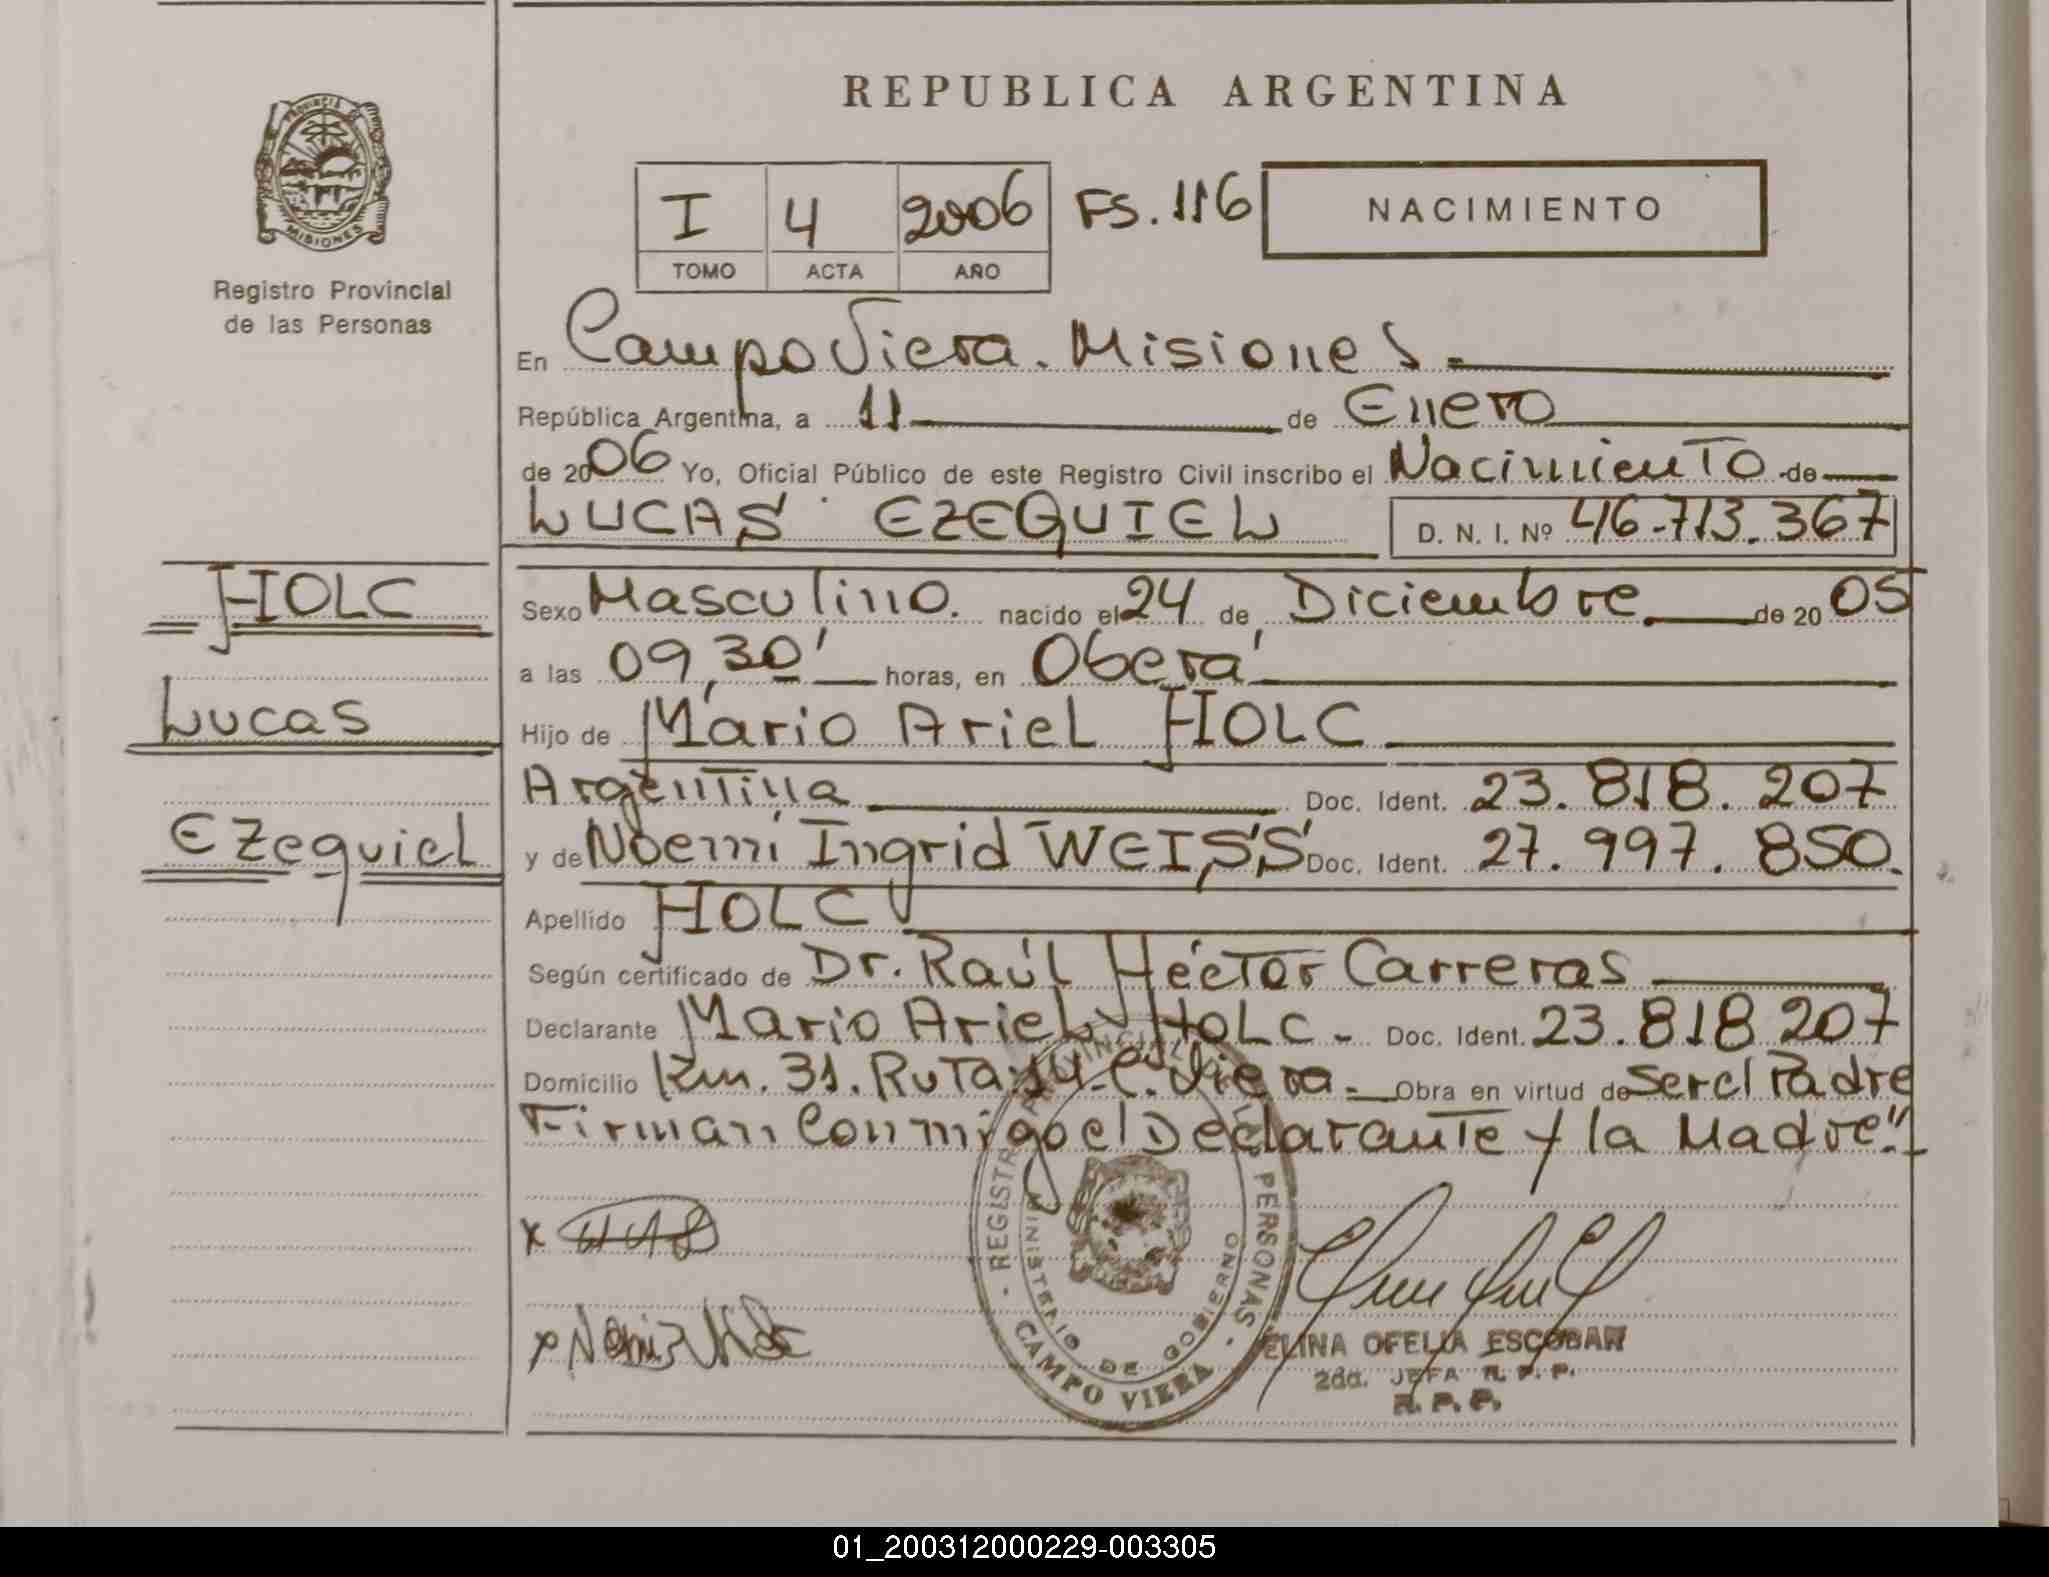 REPUBLICA ARGENTINA
PROVINCIA
MISIONES
Registro Provincial
de las Personas
I 4 2006 FS. 116
TOMO ACTA AÑO
NACIMIENTO
En Campo Viera. Misiones.
República Argentina, a 11 de Enero
de 2006 Yo, Oficial Público de este Registro Civil inscribo el Nacimiento de
LUCAS EZEQUIEL D. N. I. Nº 46.713.367
HOLC
Lucas
Ezequiel
Sexo Masculino. nacido el 24 de Diciembre de 2005
a las 09,30' horas, en Oberá
Hijo de Mario Ariel HOLC
Argentina Doc. Ident. 23.818.207
y de Noemí Ingrid WEISS Doc. Ident. 27.997.850.
Apellido HOLC
Según certificado de Dr. Raúl Héctor Carreras
Declarante Mario Ariel HOLC - Doc. Ident. 23.818 207
Domicilio Km. 31. Ruta 14-C. Viera - Obra en virtud de Ser el Padre
Firman Conmigo el Declarante y la Madre"
x
x
REGISTRO PROVINCIAL DE LAS PERSONAS
MINISTERIO DE GOBIERNO
CAMPO VIERA
ELINA OFELIA ESCOBAR
2da. JEFA R. P. P.
R. P. P.
01_200312000229-003305